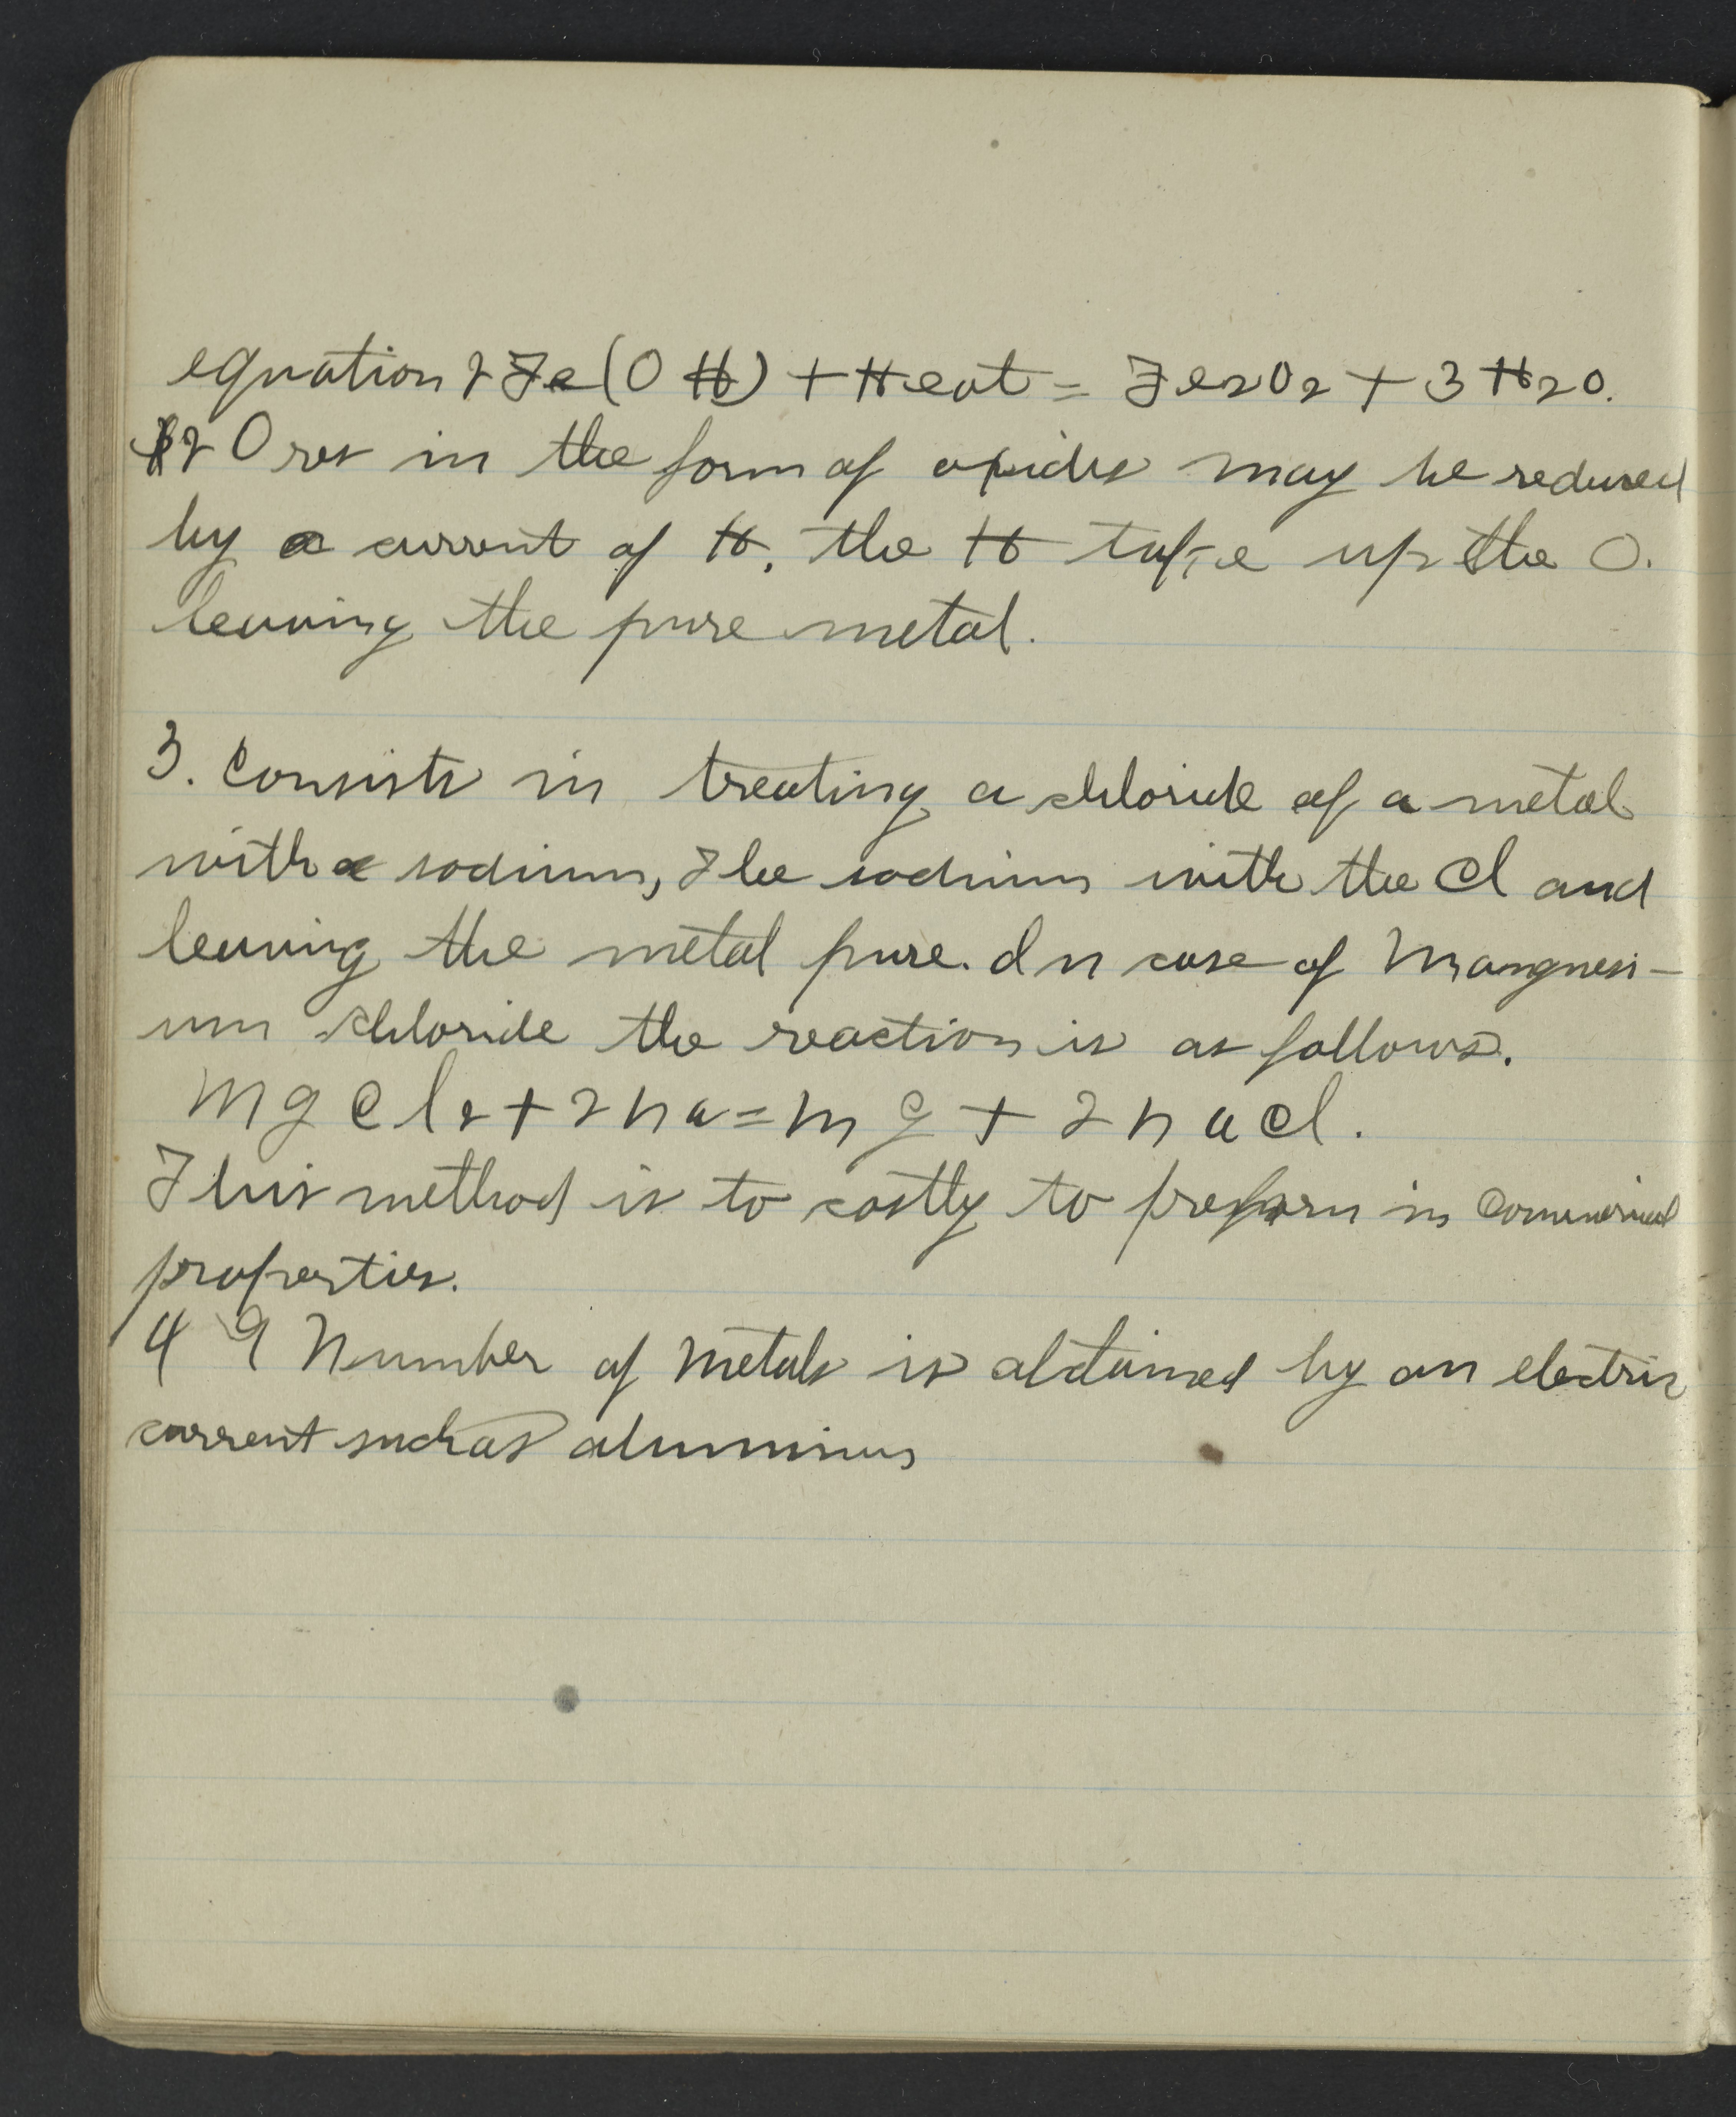 equation 2Fe(OH) + Heat = Fe2O2 + 3H2O.
2 Ores in the form of oxides may be reduced
by a current of H, the H take up the O.
leaving the pure metal.
3. Consists in treating a chloride of a metal
with sodium, The sodium with the Cl and
leaving the metal pure. In case of Mangnesi-
um chloride the reaction is as follows.
MgCl2 + 2Na = Mg + 2NaCl.
This method is to costly to in Commerical
properties.
4 A Number of Metals is obtained by an electric
current such as aluminum